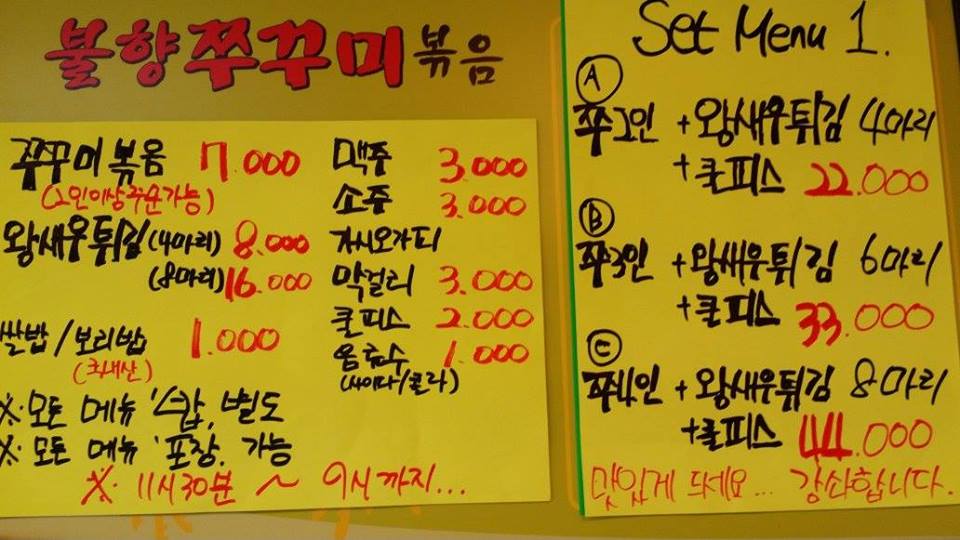 불향쭈꾸미볶음
쭈꾸미볶음 7.000
(2인이상주문가능)
왕새우튀김(4마리) 8.000
(8마리) 16.000
쌀밥/보리밥 1.000
(국내산)
※.모든 메뉴 '밥, 별도
※.모든 메뉴 '포장, 가능
※ 11시30분 ~ 9시까지...
맥주 3.000
소주 3.000
가시오가피
막걸리 3.000
쿨피스 2.000
음료수 1.000
(사이다/콜라)
Set Menu 1.
A
쭈2인 + 왕새우튀김 4마리
+쿨피스 22.000
B
쭈3인 + 왕새우튀김 6마리
+쿨피스 33.000
C
쭈4인 + 왕새우튀김 8마리
+쿨피스 44.000
맛있게 드세요... 감솨합니다.